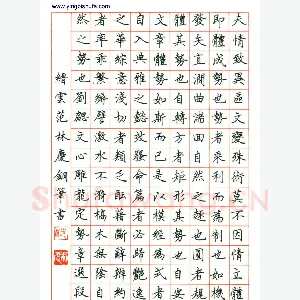 www.yingbishufa.com
夫情致異區文變殊術莫不因情立體
即體成勢也勢者乘利而為制也如機
發矢直澗曲湍回自然之趣也圓者規
體其勢也自轉方者矩形其勢也自安
文章體勢如斯而已是以模經為式者
自入典雅之懿效騷命篇者必歸艷逸
之華綜意淺切者類乏醞藉斷辭辨約
者率乖繁縟譬激水不漪槁木無陰自
然之勢也劉勰文心雕龍定勢章選段
縉雲范林慶鋼筆書